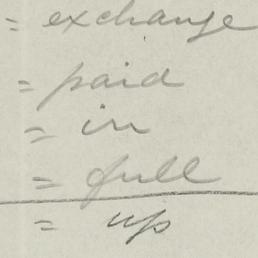 = exchange
= paid
= in
= full
= up